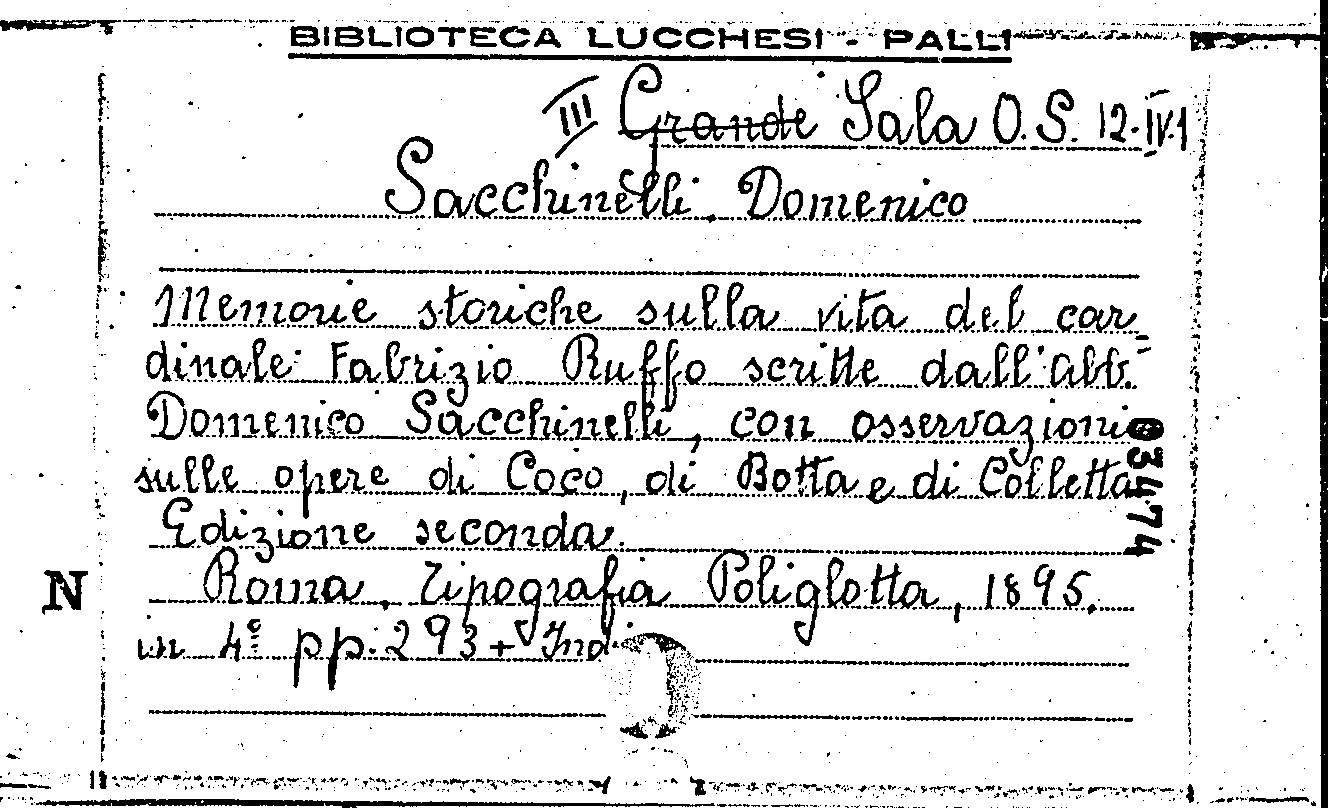 BIBLIOTECA LUCCHESI - PALLI
III Grande Sala O.S. 12-IV.1
Sacchinelli, Domenico
Memorie storiche sulla vita del car-
dinale Fabrizio Ruffo scritte dall'abb.
Domenico Sacchinelli, con osservazioni
sulle opere di Coco, di Botta e di Colletta
Edizione seconda.
Roma, Tipografia Poliglotta, 1895.
in 4º pp. 293 +
03474
N